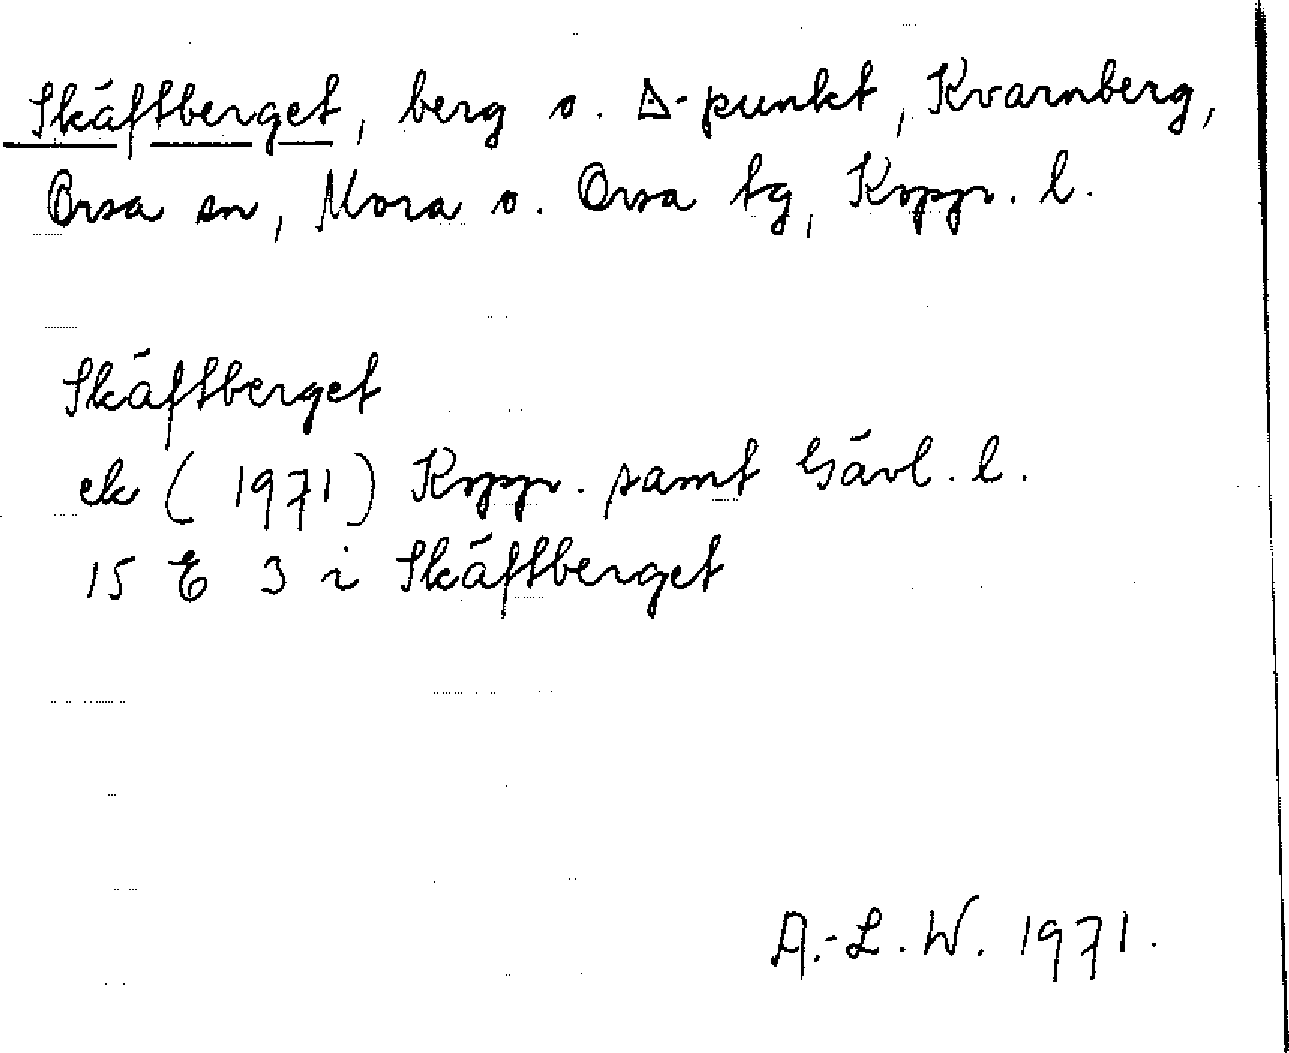 Skäftberget, berg o. Δ-punkt, Kvarnberg,
Orsa sn, Mora o. Orsa tg, Kopp. l.
Skäftberget
ek (1971) Kopp. samt Gävl. l.
15 E 3 i Skäftberget
A.-L. W. 1971.